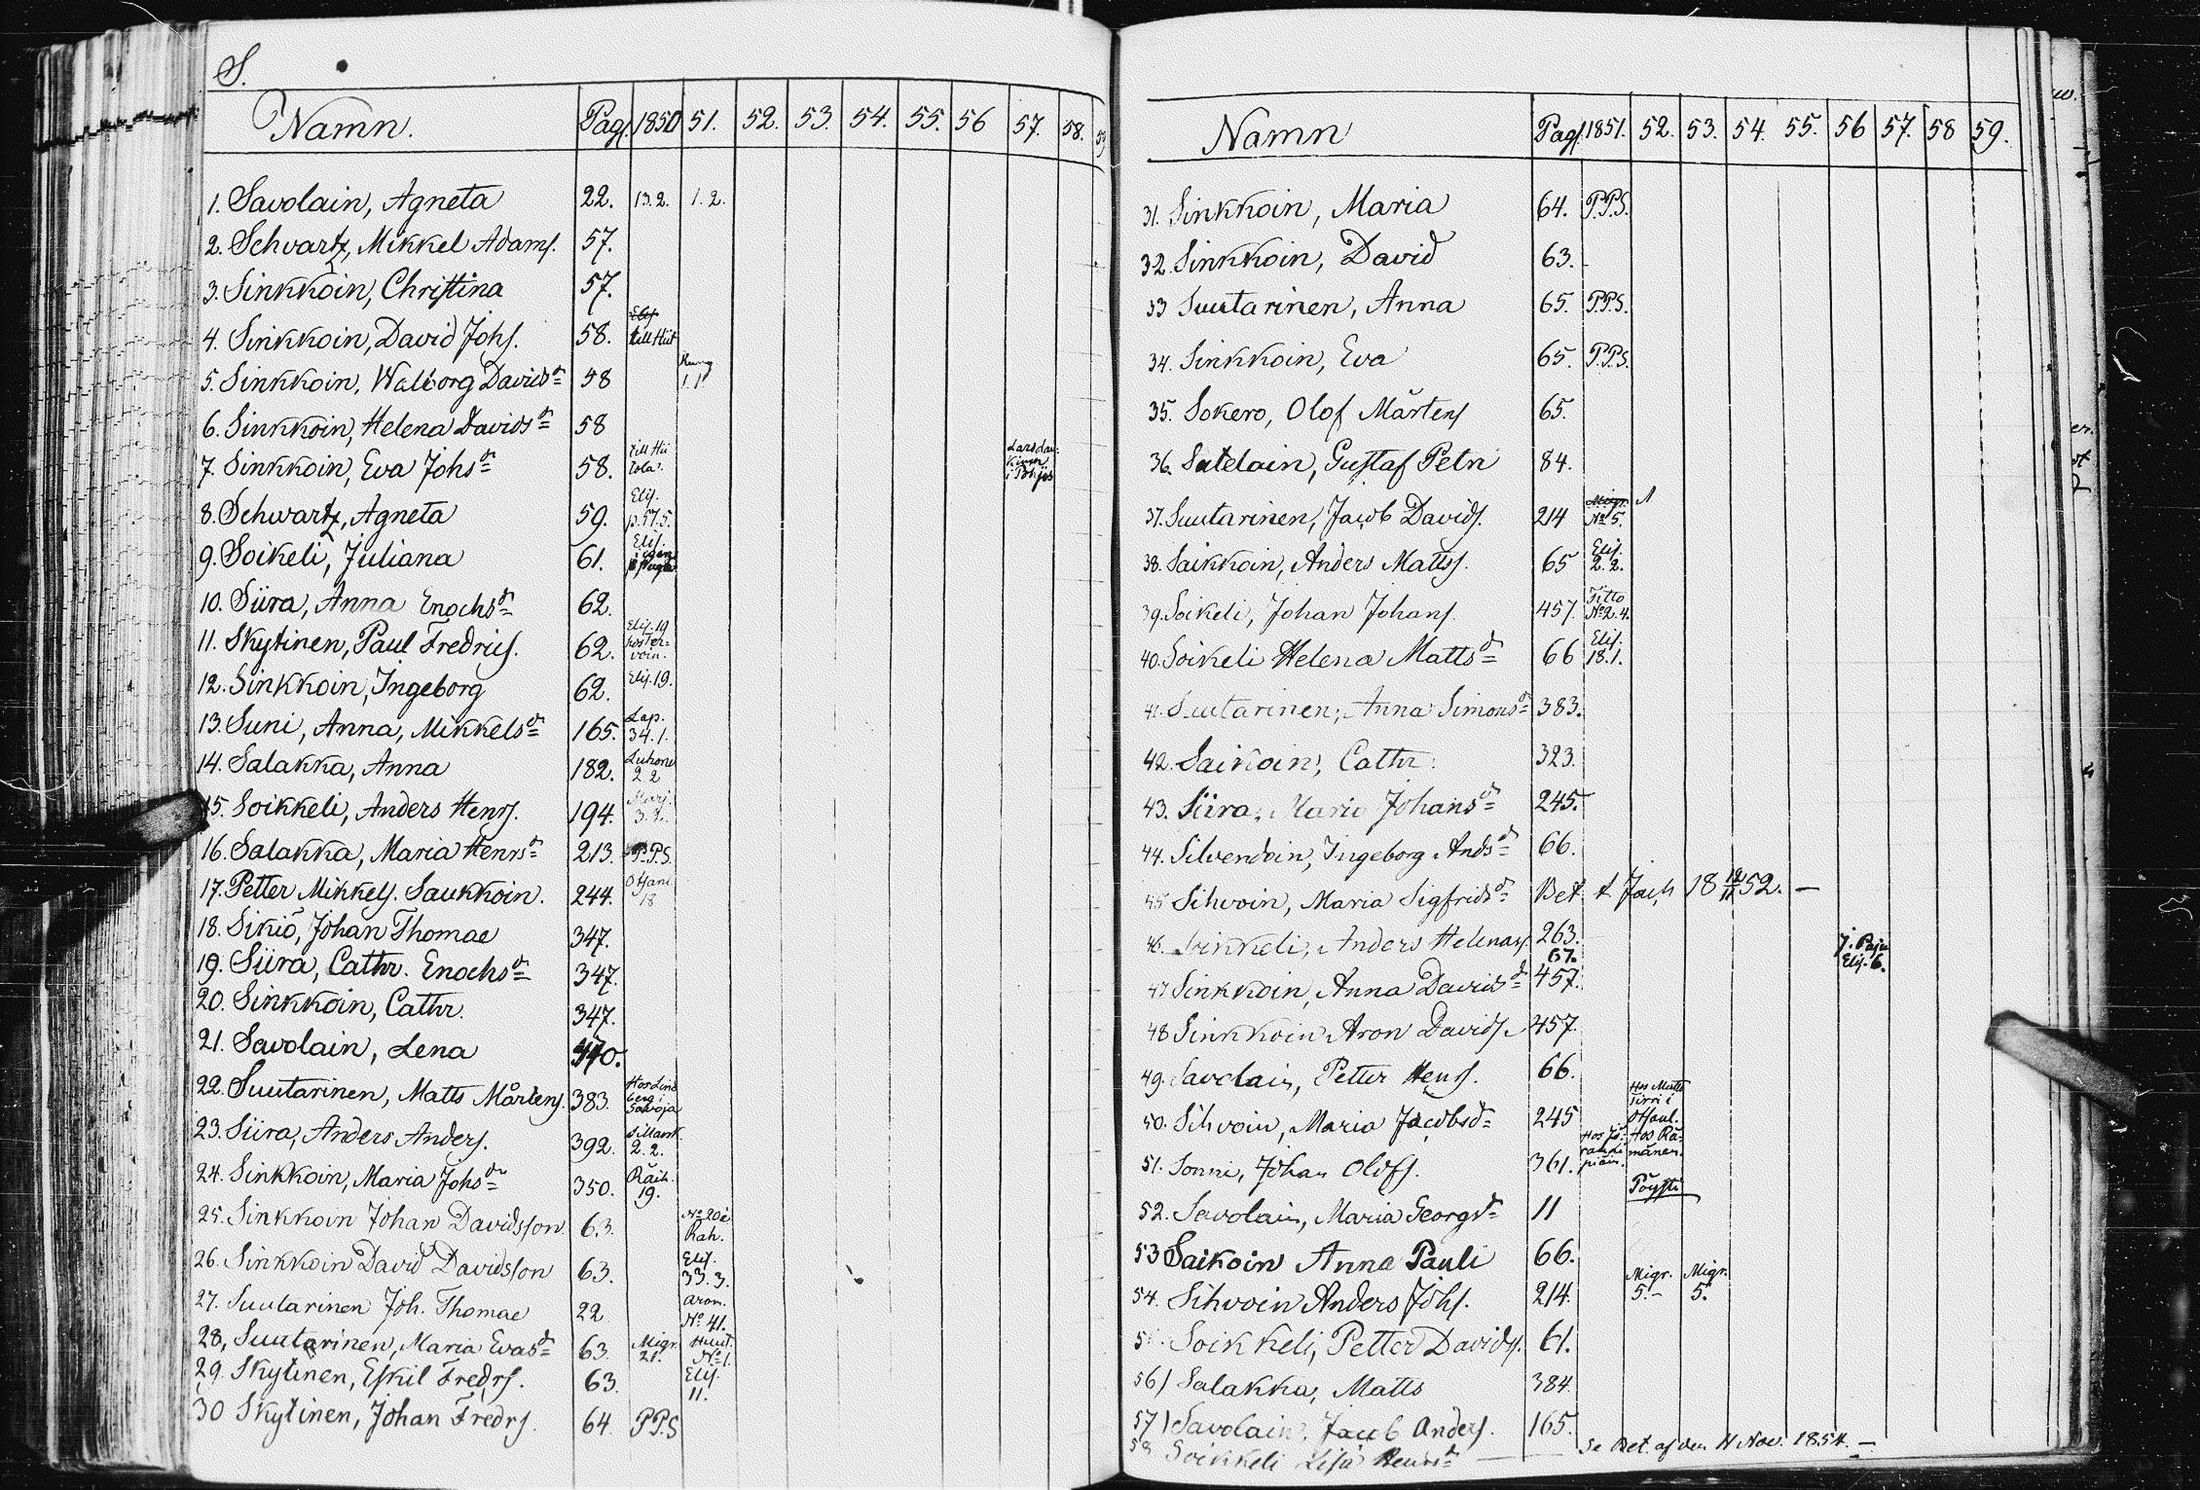 S.
Namn. Pag. 1850 51. 52. 53. 54. 55. 56 57. 58. 59
1. Savolain, Agneta 22. 13.2. 1.2.
2. Schvartz, Mikkel Adams. 57.
3. Sinkkoin, Christina 57.
4. Sinkkoin, David Johs. 58. Elis till Hiit
5. Sinkkoin, Walborg Davidsdr 58 1.1
6. Sinkkoin, Helena Davidsdr 58
7. Sinkkoin, Eva Johsdr 58. till Hii tola. i Pohjis
8. Schwartz, Agneta 59. Elis. p.57.5.
9. Soikeli, Juliana 61. Elis.
10. Siira, Anna Enochsdr 62.
11. Skytinen, Paul Fredrics. 62. Elis.19
12. Sinkkoin, Ingeborg 62. Elis.19.
13. Suni, Anna, Mikkelsdr 165. Lap. 34.1.
14. Salakka, Anna 182. Luhone 2 2
15. Soikkeli, Anders Henrs. 194. Marj. 3.2.
16. Salakka, Maria Henrsdr 213. P.P.S.
17. Petter Mikkels. Saukkoin. 244. 18
18. Sikiö, Johan Thomae 347.
19. Siira, Cathr. Enochsdr 347.
20. Sinkkoin, Cathr. 347.
21. Savolain, Lena
22. Suutarinen, Matts Mårtens. 383. Hos Lind berg i
23. Siira, Anders Anders. 392. 2.2.
24. Sinkkoin, Maria Johsdr 350. Räih. 19.
25. Sinkkoin Johan Davidsson. 63. No 20 i Rah.
26. Sinkkoin David Davidsson 63. Elis. 33.3.
27. Suutarinen Joh. Thomae 22 Aron. No 41.
28, Suutarinen, Maria Evasdr 63. Migr. 21. No 1.
29. Skytinen, Eskil Fredrs. 63. Elis. 11.
30 Skytinen, Johan Fredrs. 64 P.P.S
Namn Pag. 1851. 52. 53. 54. 55. 56 57. 58 59.
31. Sinkkoin, Maria 64. P.P.S.
32. Sinkkoin, David 63.
33 Suutarinen, Anna 65. P.P.S.
34. Sinkkoin, Eva 65. P.P.S.
35. Sokero, Olof Mårtens 65.
36. Satelain, Gustaf Petri 84.
37. Suutarinen, Jacob Davids. 214 Migr. No 5.
38. Saikkoin, Anders Matts. 65 Elis. 2.2.
39. Soikeli, Johan Johans. 457. Titto No 2.4.
40. Soikeli Helena Mattsdr 66 Elis. 18.1.
41. Suutarinen, Anna Simonsdr 383.
42. Saikoin, Cathr. 323.
43. Siira, Maria Johansdr 245.
44. Silvendoin, Ingeborg Andsdr 66.
45 Sihvoin, Maria Sigfridsdr Bet. t. 18 12/11 52. —
46. Soikkeli, Anders Helenas. 263. 67. J. Paju Elis. 6.
47 Sinkkoin, Anna Davidsdr 457.
48 Sinkkoin Aron Davids. 457.
49. Savolain, Petter Henrs. 66.
50. Sihvoin, Maria Jacobsdr 245 Hos Matts Sirri i
51. Sonni, Johan Olofs. 361. Hos
52. Savolain, Maria Georgsdr 11 Pöysti
53 Saikoin Anna Pauli 66.
54. Sihvoin Anders Johs. 214. Migr. 5.– Migr. 5.
5 Soikkeli, Petter Davids. 61.
56) Salakka, Matts 384.
57) Savolain, Jacob Anders. 165.
58 Soikkeli Lisa Henrsdr — Se Bet. af den 11 Nov. 1854. —